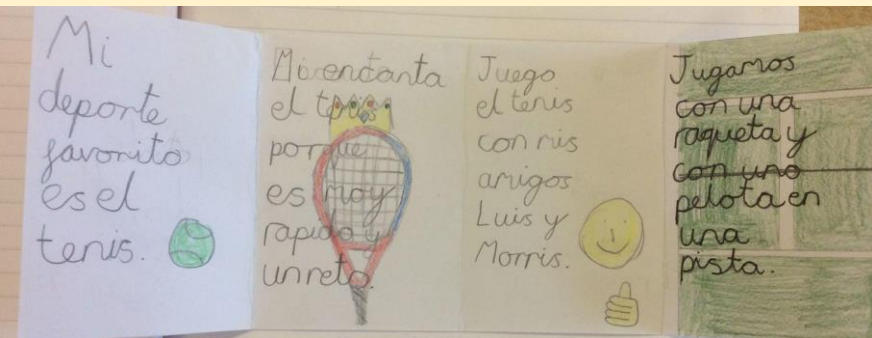 Mi
deporte
favorito
es el
tenis.
Mi encanta
el tenis
porque
es moy
rapido y
un reto.
Juego
el tenis
con mis
amigos
Luis y
Morris.
Jugamos
con una
raqueta y
con uno
pelota en
una
pista.